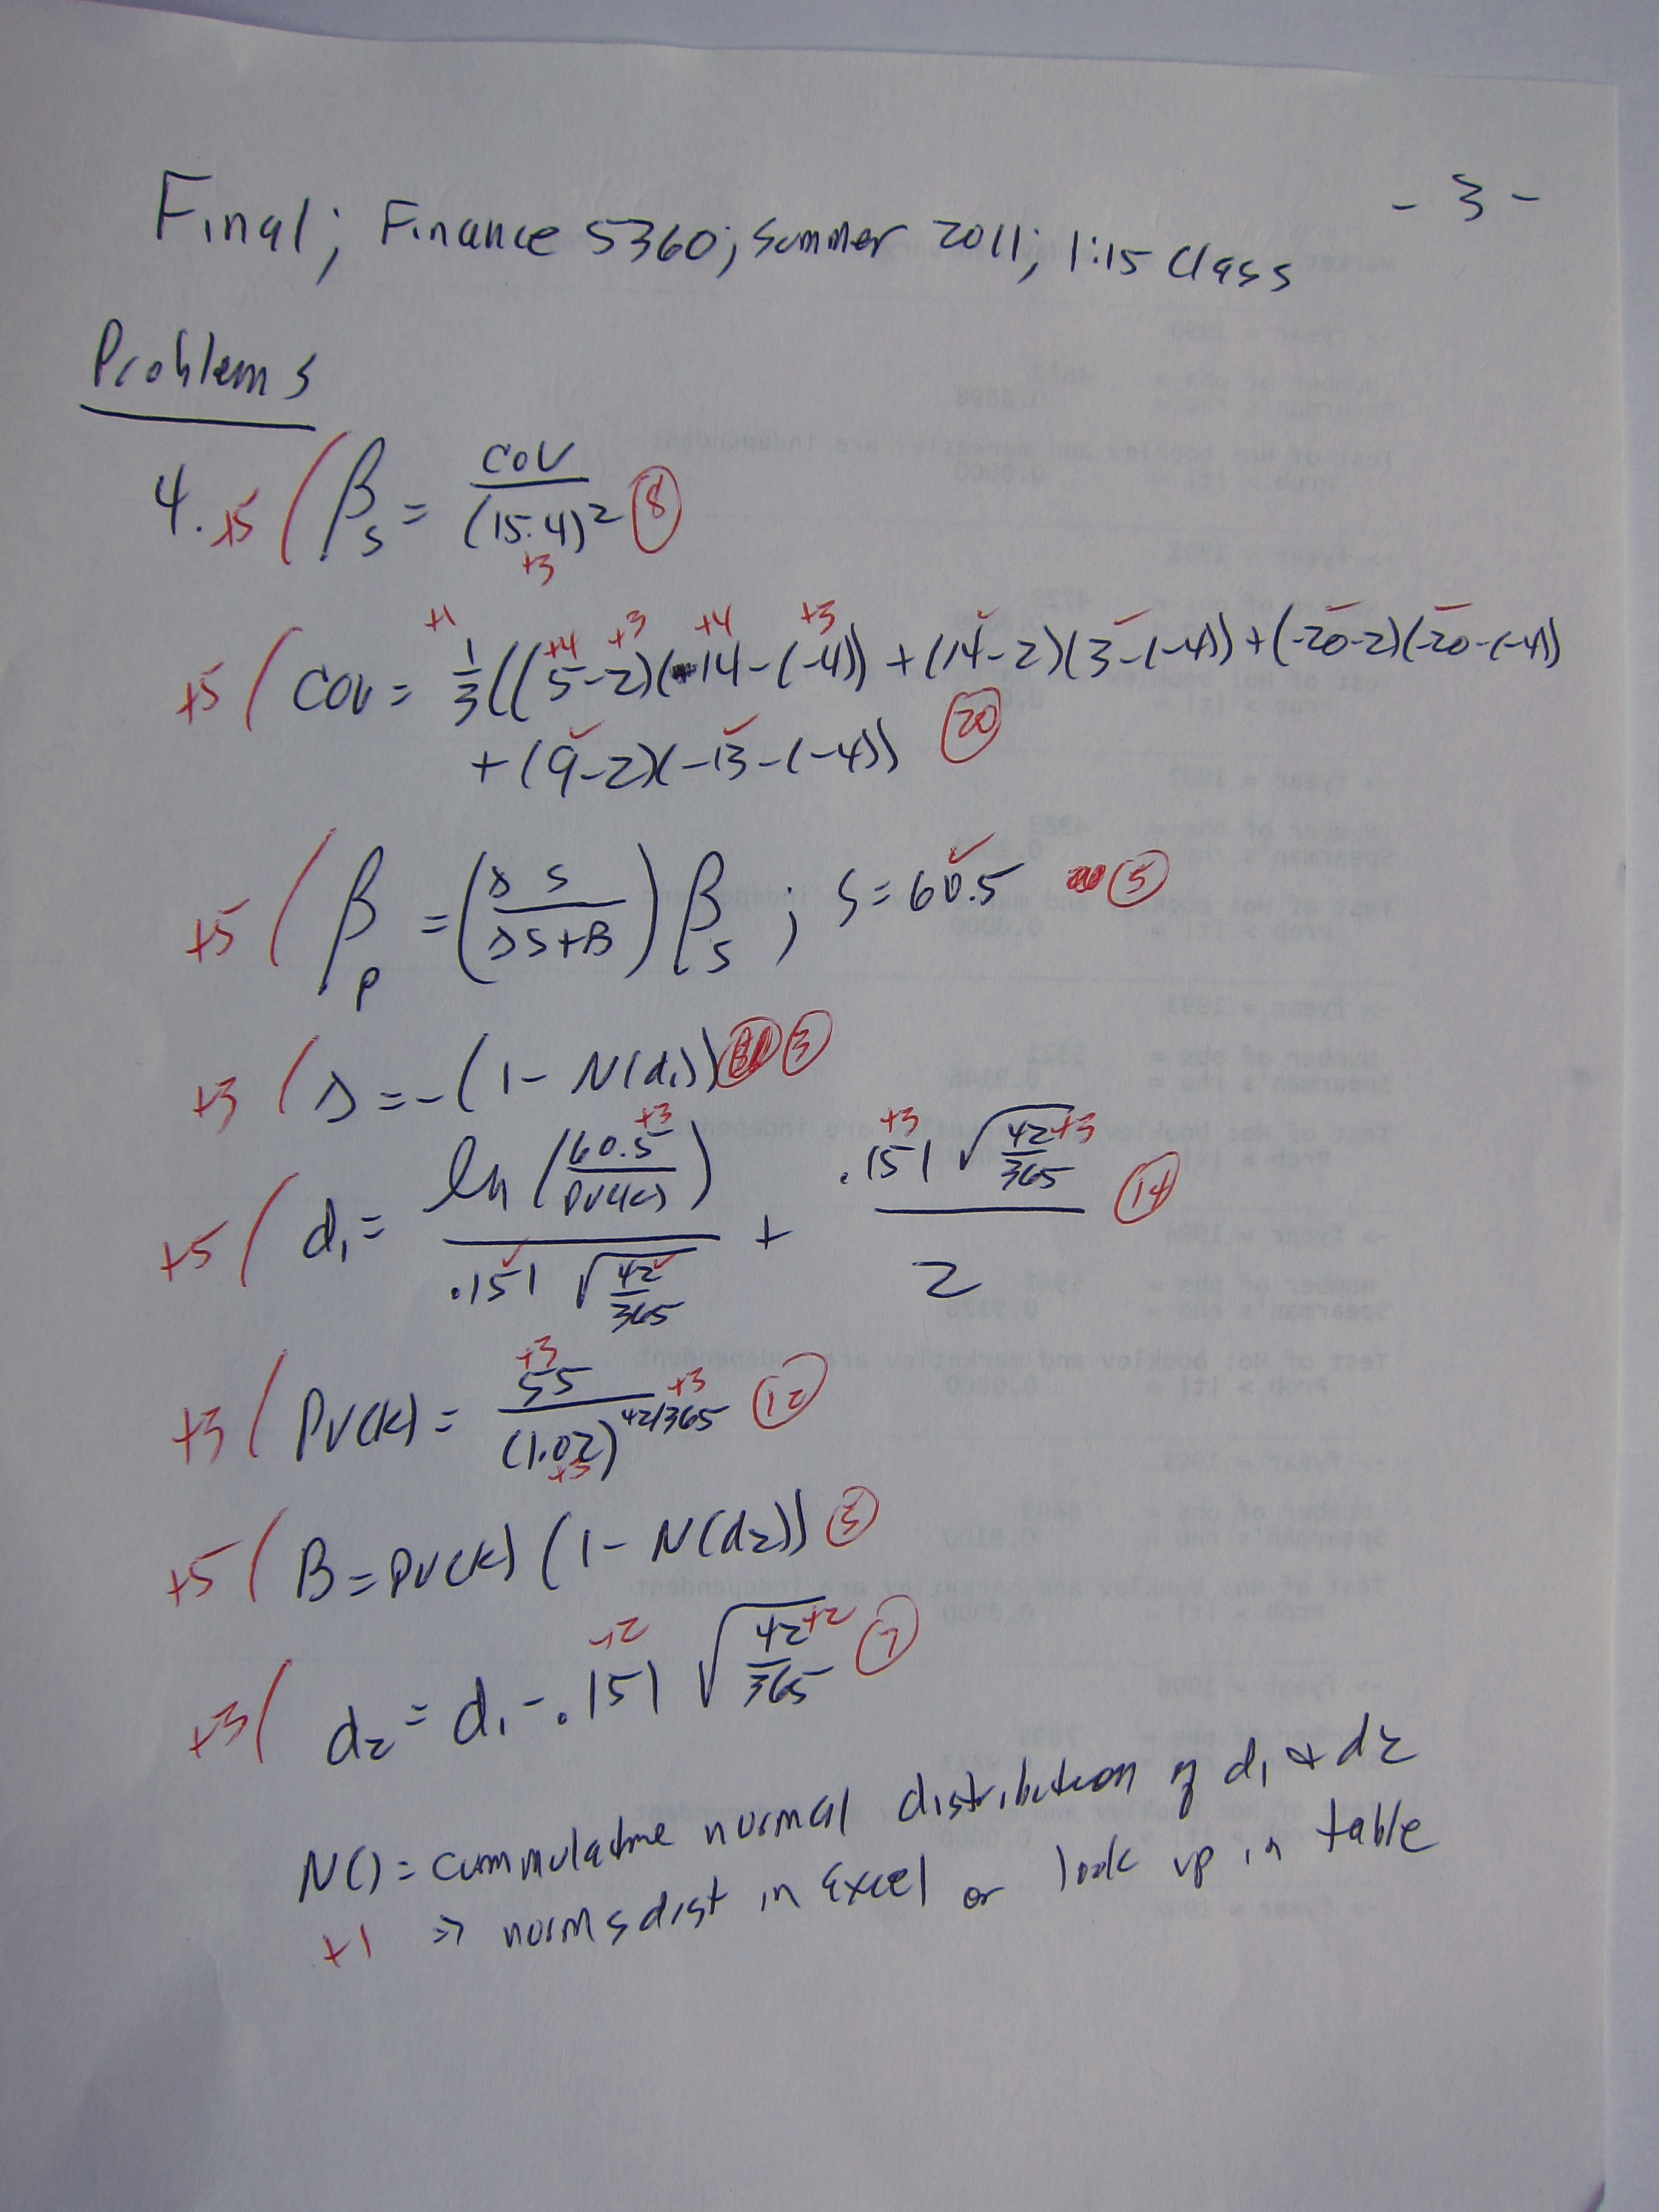 - 3 -
Final; Finance 5360; Summer 2011; 1:15 Class
Problems
4. +5 ( β_S = COV / (15.4)² (8)
+3
+1 +4 +3 +4 +3
+5 ( COV = 1/3 ((5-2)(14-(-4)) + (14-2)(3-(-4)) + (-20-2)(-20-(-4))
+ (9-2)(-13-(-4))) (20)
+5 ( β_P = (ΔS / ΔS+B) β_S ; S = 60.5 (5)
+3 ( Δ = -(1 - N(d₁)) (3)
+3 +3 +3
+5 ( d₁ = ln (60.5 / PV(K)) / .151 √42/365 + .151 √42/365 / 2 (14)
+3 +3
+3 ( PV(K) = 55 / (1.02)^42/365 (12)
+3
+5 ( B = PV(K) (1 - N(d₂)) (5)
+2 +2
+3 ( d₂ = d₁ - .151 √42/365 (7)
N() = cummulative normal distribution of d₁ & d₂
+1 ⇒ normsdist in Excel or look up in table